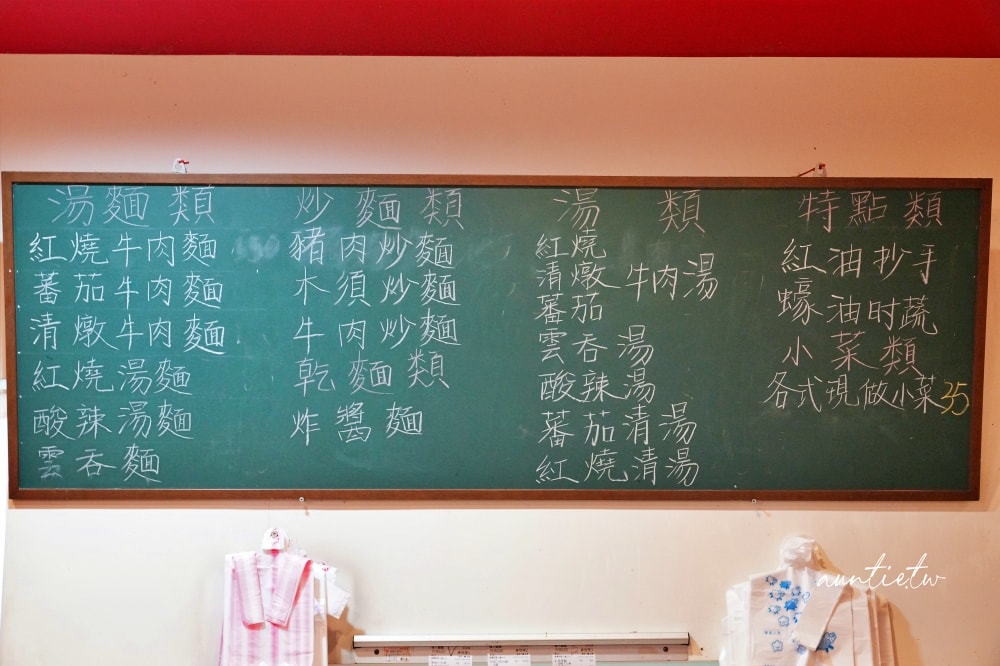 湯麵類
紅燒牛肉麵
蕃茄牛肉麵
清燉牛肉麵
紅燒湯麵
酸辣湯麵
雲吞麵
炒麵類
豬肉炒麵
木須炒麵
牛肉炒麵
乾麵類
炸醬麵
湯類
紅燒
清燉牛肉湯
蕃茄
雲吞湯
酸辣湯
蕃茄清湯
紅燒清湯
特點類
紅油抄手
蠔油时蔬
小菜類
各式現做小菜35
auntie.tw